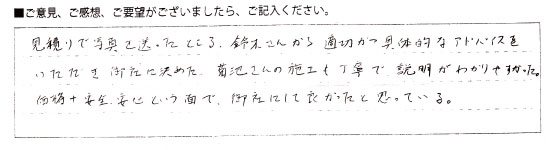 ■ご意見、ご感想、ご要望がございましたら、ご記入ください。
見積りで写真を送ったところ、鈴木さんから適切かつ具体的なアドバイスを
いただき御社に決めた。菊池さんの施工も丁寧で、説明がわかりやすかった。
価格+安全、安心という面で、御社にして良かったと思っている。